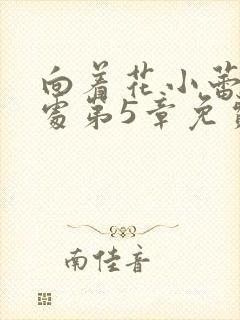 向着花小蕾
处第5章免费
南佳音